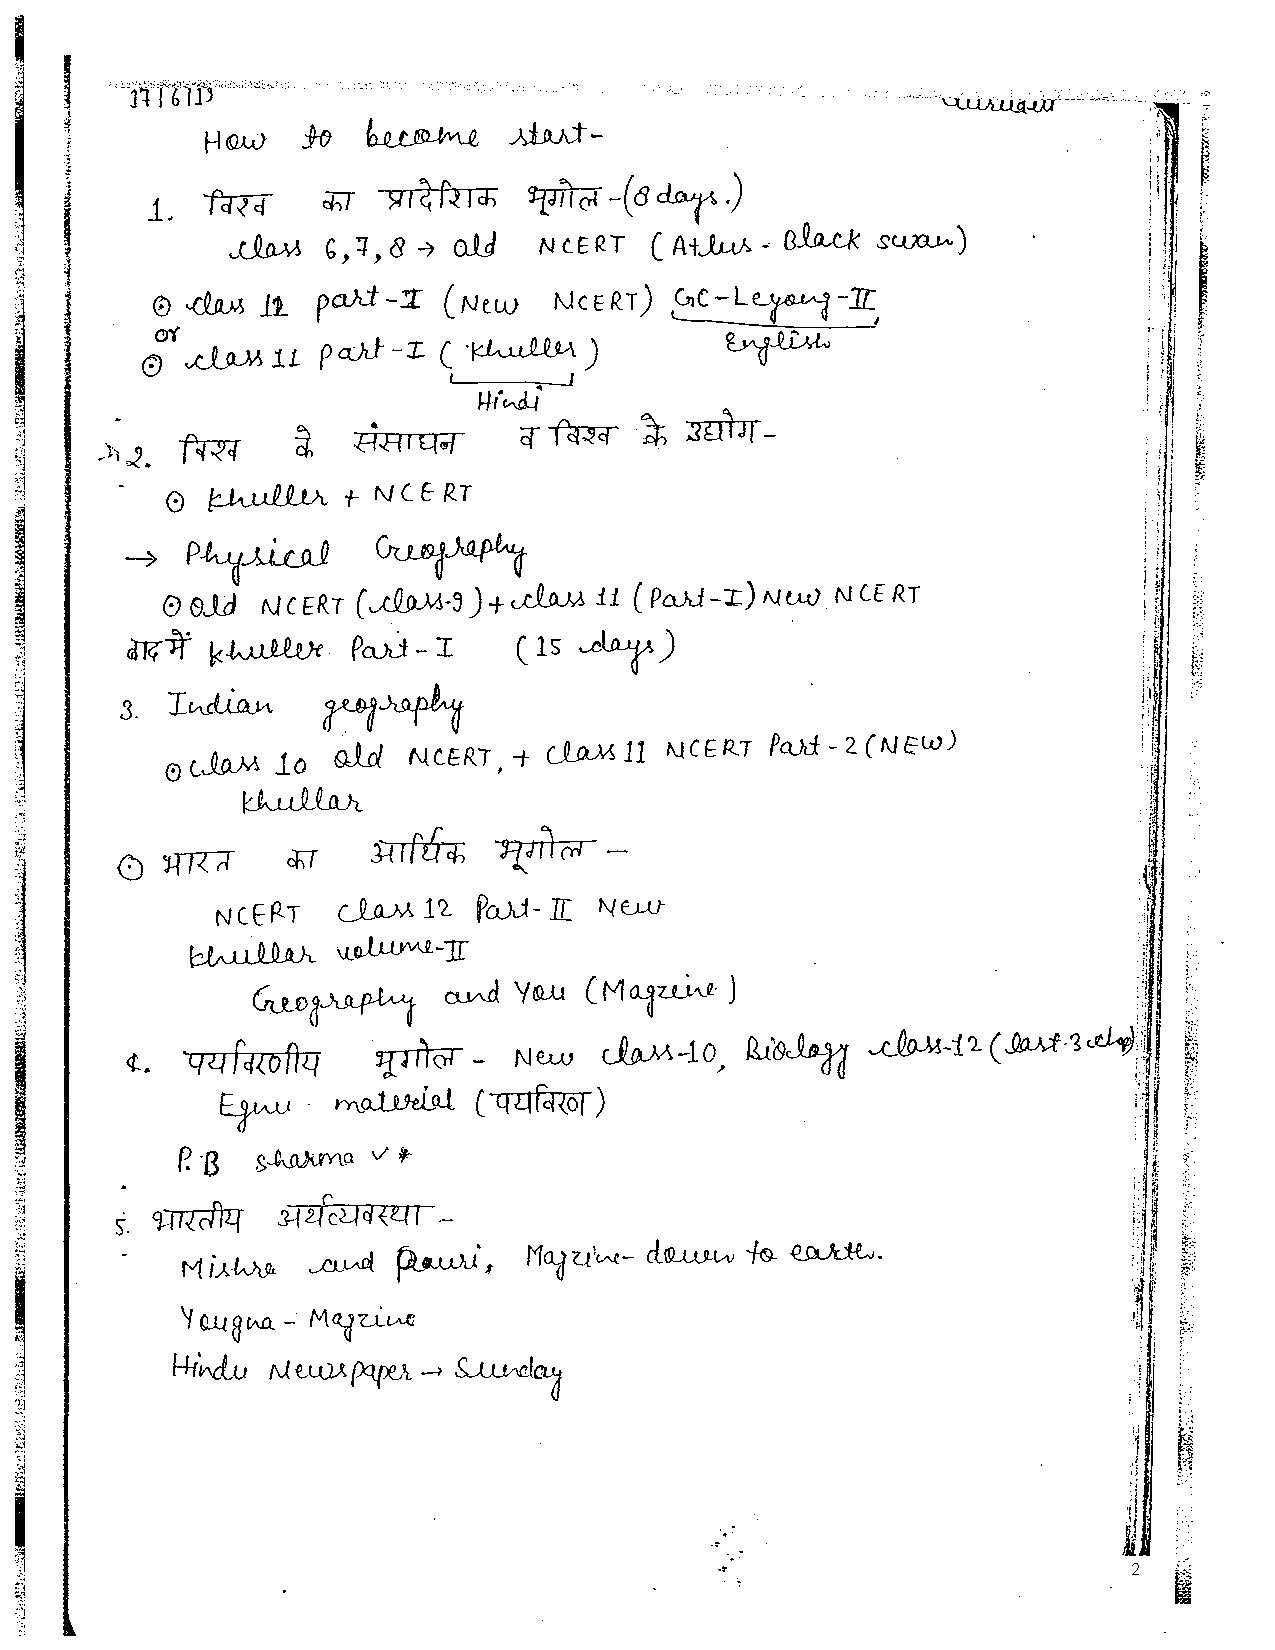 17/6/13
How to become start-
1. विश्व का प्रादेशिक भूगोल -(8 days.)
class 6,7,8 → old NCERT (Atlus - Black swan)
⊙ class 12 part-I (New NCERT) GC-Leyong-II
or English
⊙ class 11 part-I (Khuller)
Hindi
2. विश्व के संसाधन व विश्व के उद्योग-
⊙ khuller + NCERT
→ Physical Geography
⊙ old NCERT (class-9) + class 11 (Part-I) New NCERT
बाद में khuller Part-I (15 days)
3. Indian geography
⊙ class 10 old NCERT, + class 11 NCERT Part-2 (NEW)
khullar
⊙ भारत का आर्थिक भूगोल –
NCERT class 12 Part-II New
khullar volume-II
Geography and You (Magzine)
4. पर्यावरणीय भूगोल - New class-10, Biology class-12 (last 3 chap)
Egnu material (पर्यावरण)
P.B sharma ✓ *
5. भारतीय अर्थव्यवस्था -
Mishra and Pouri, Magzine- down to earth.
Yougna - Magzine
Hindu Newspaper → Sunday
2